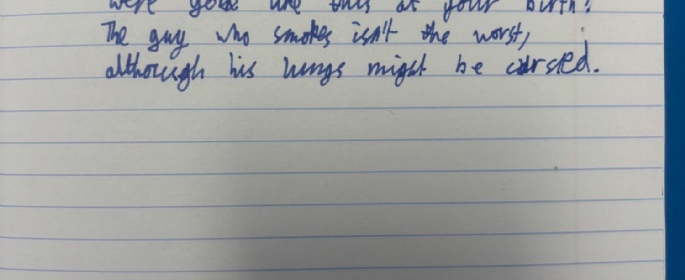 were you like this at your birth?
The guy who smokes isn't the worst,
although his lungs might be cursed.